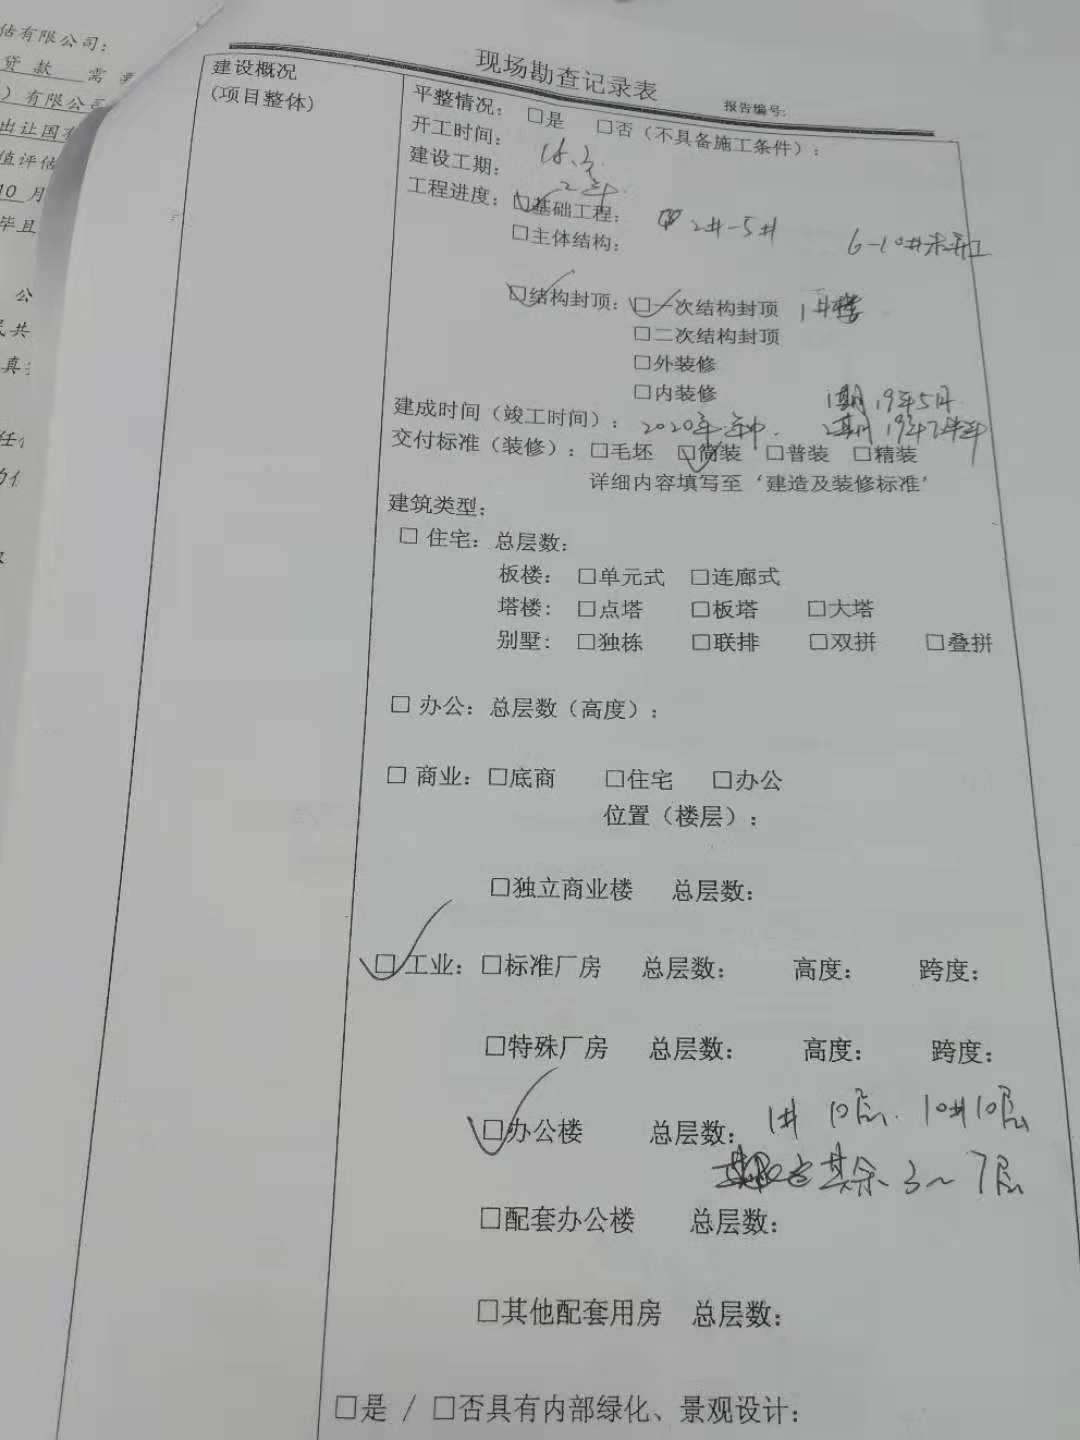 估有限公司：
贷款 需
）有限公司
出让国有
值评估
10 月
毕且
公
民共
真
任
现场勘查记录表
报告编号:
建设概况
(项目整体)
平整情况： □是 □否（不具备施工条件）：
开工时间： 18.3
建设工期： 2年.
工程进度：□基础工程： 2#-5# 6-10#未开工
□主体结构：
□结构封顶：□一次结构封顶 1#楼
□二次结构封顶
□外装修
□内装修
1期 19年5月.
建成时间（竣工时间）： 2020年年中. 2期 19年下半年
交付标准（装修）：□毛坯 □简装 □普装 □精装
详细内容填写至‘建造及装修标准’
建筑类型：
□ 住宅：总层数：
板楼： □单元式 □连廊式
塔楼: □点塔 □板塔 □大塔
别墅: □独栋 □联排 □双拼 □叠拼
□ 办公：总层数（高度）：
□ 商业：□底商 □住宅 □办公
位置（楼层）：
□独立商业楼 总层数:
□工业：□标准厂房 总层数: 高度: 跨度:
□特殊厂房 总层数: 高度: 跨度:
□办公楼 总层数: 1# 10层. 10#10层
其余 3～7层
□配套办公楼 总层数:
□其他配套用房 总层数:
□是 / □否具有内部绿化、景观设计: